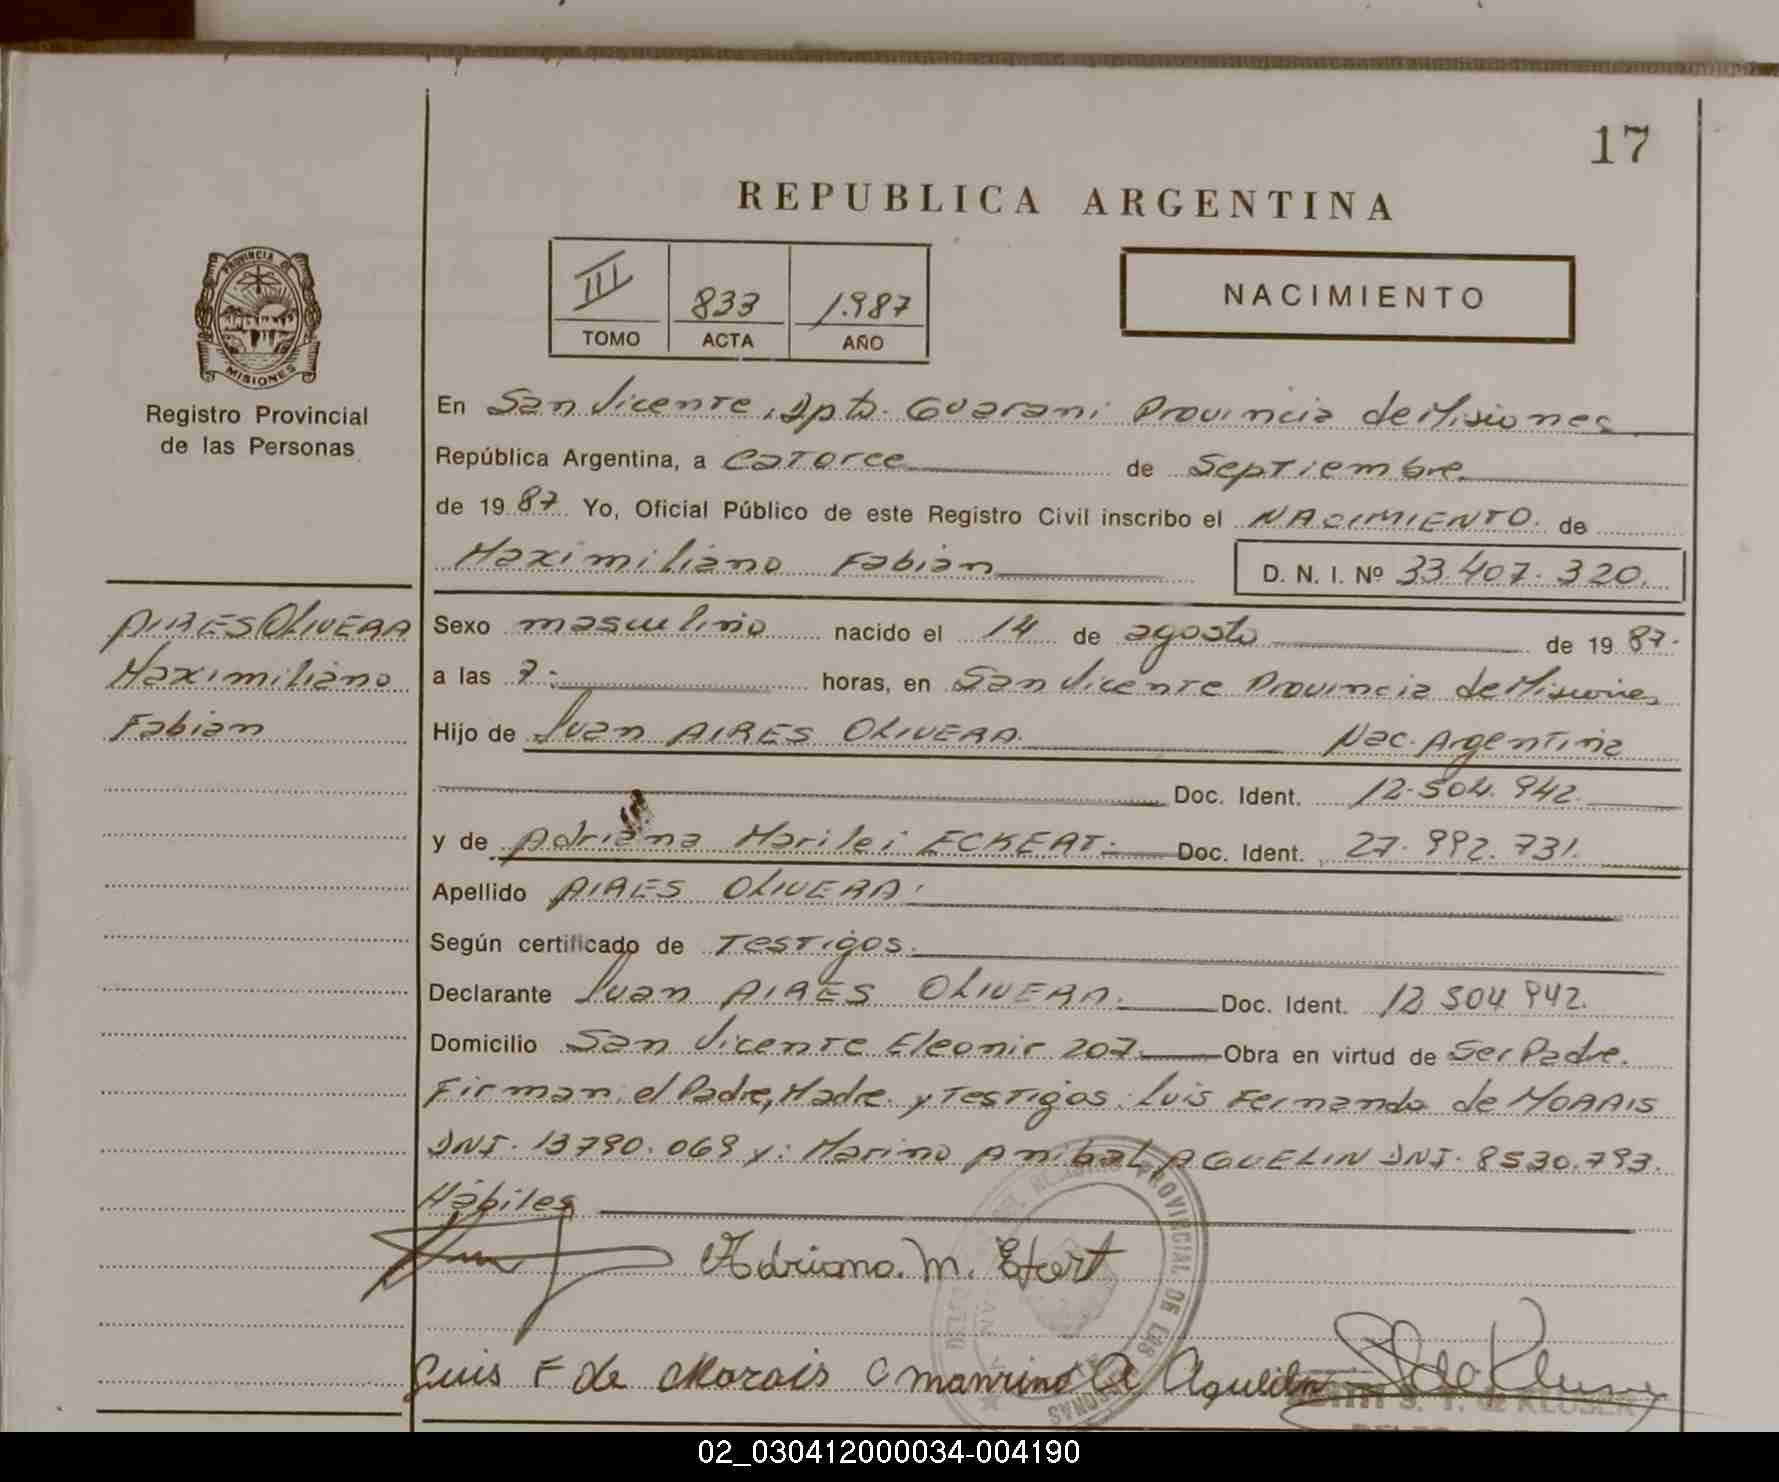 17
REPUBLICA ARGENTINA
III 833 1.987
TOMO ACTA AÑO
NACIMIENTO
PROVINCIA DE
MISIONES
Registro Provincial
de las Personas
En San Vicente, Dpto. Guarani Provincia de Misiones
República Argentina, a Catorce de Septiembre.
de 1987 Yo, Oficial Público de este Registro Civil inscribo el NACIMIENTO. de
Maximiliano Fabian D. N. I. Nº 33.407.320.
AIRES OLIVERA
Maximiliano
Fabian
Sexo masculino nacido el 14 de agosto de 1987.
a las 7.- horas, en San Vicente Provincia de Misiones
Hijo de Juan AIRES OLIVERA. Nac. Argentina
Doc. Ident. 12.504.942.
y de Adriana Marilei ECKERT.- Doc. Ident. 27.992.731.
Apellido AIRES OLIVERA.
Según certificado de Testigos.
Declarante Juan AIRES OLIVERA. Doc. Ident. 12.504.942.
Domicilio San Vicente Eleonir 207. Obra en virtud de Ser Padre.
Firman el Padre, Madre y Testigos: Luis Fernando de MORAIS
DNI. 13790.069 y: Marino Anibal AGUELIN DNI. 8530.793.
Hábiles
Adriana. M. Ekert
Luis F de Morais Marino A Aguelin
S. T. de KLUSER
02_030412000034-004190